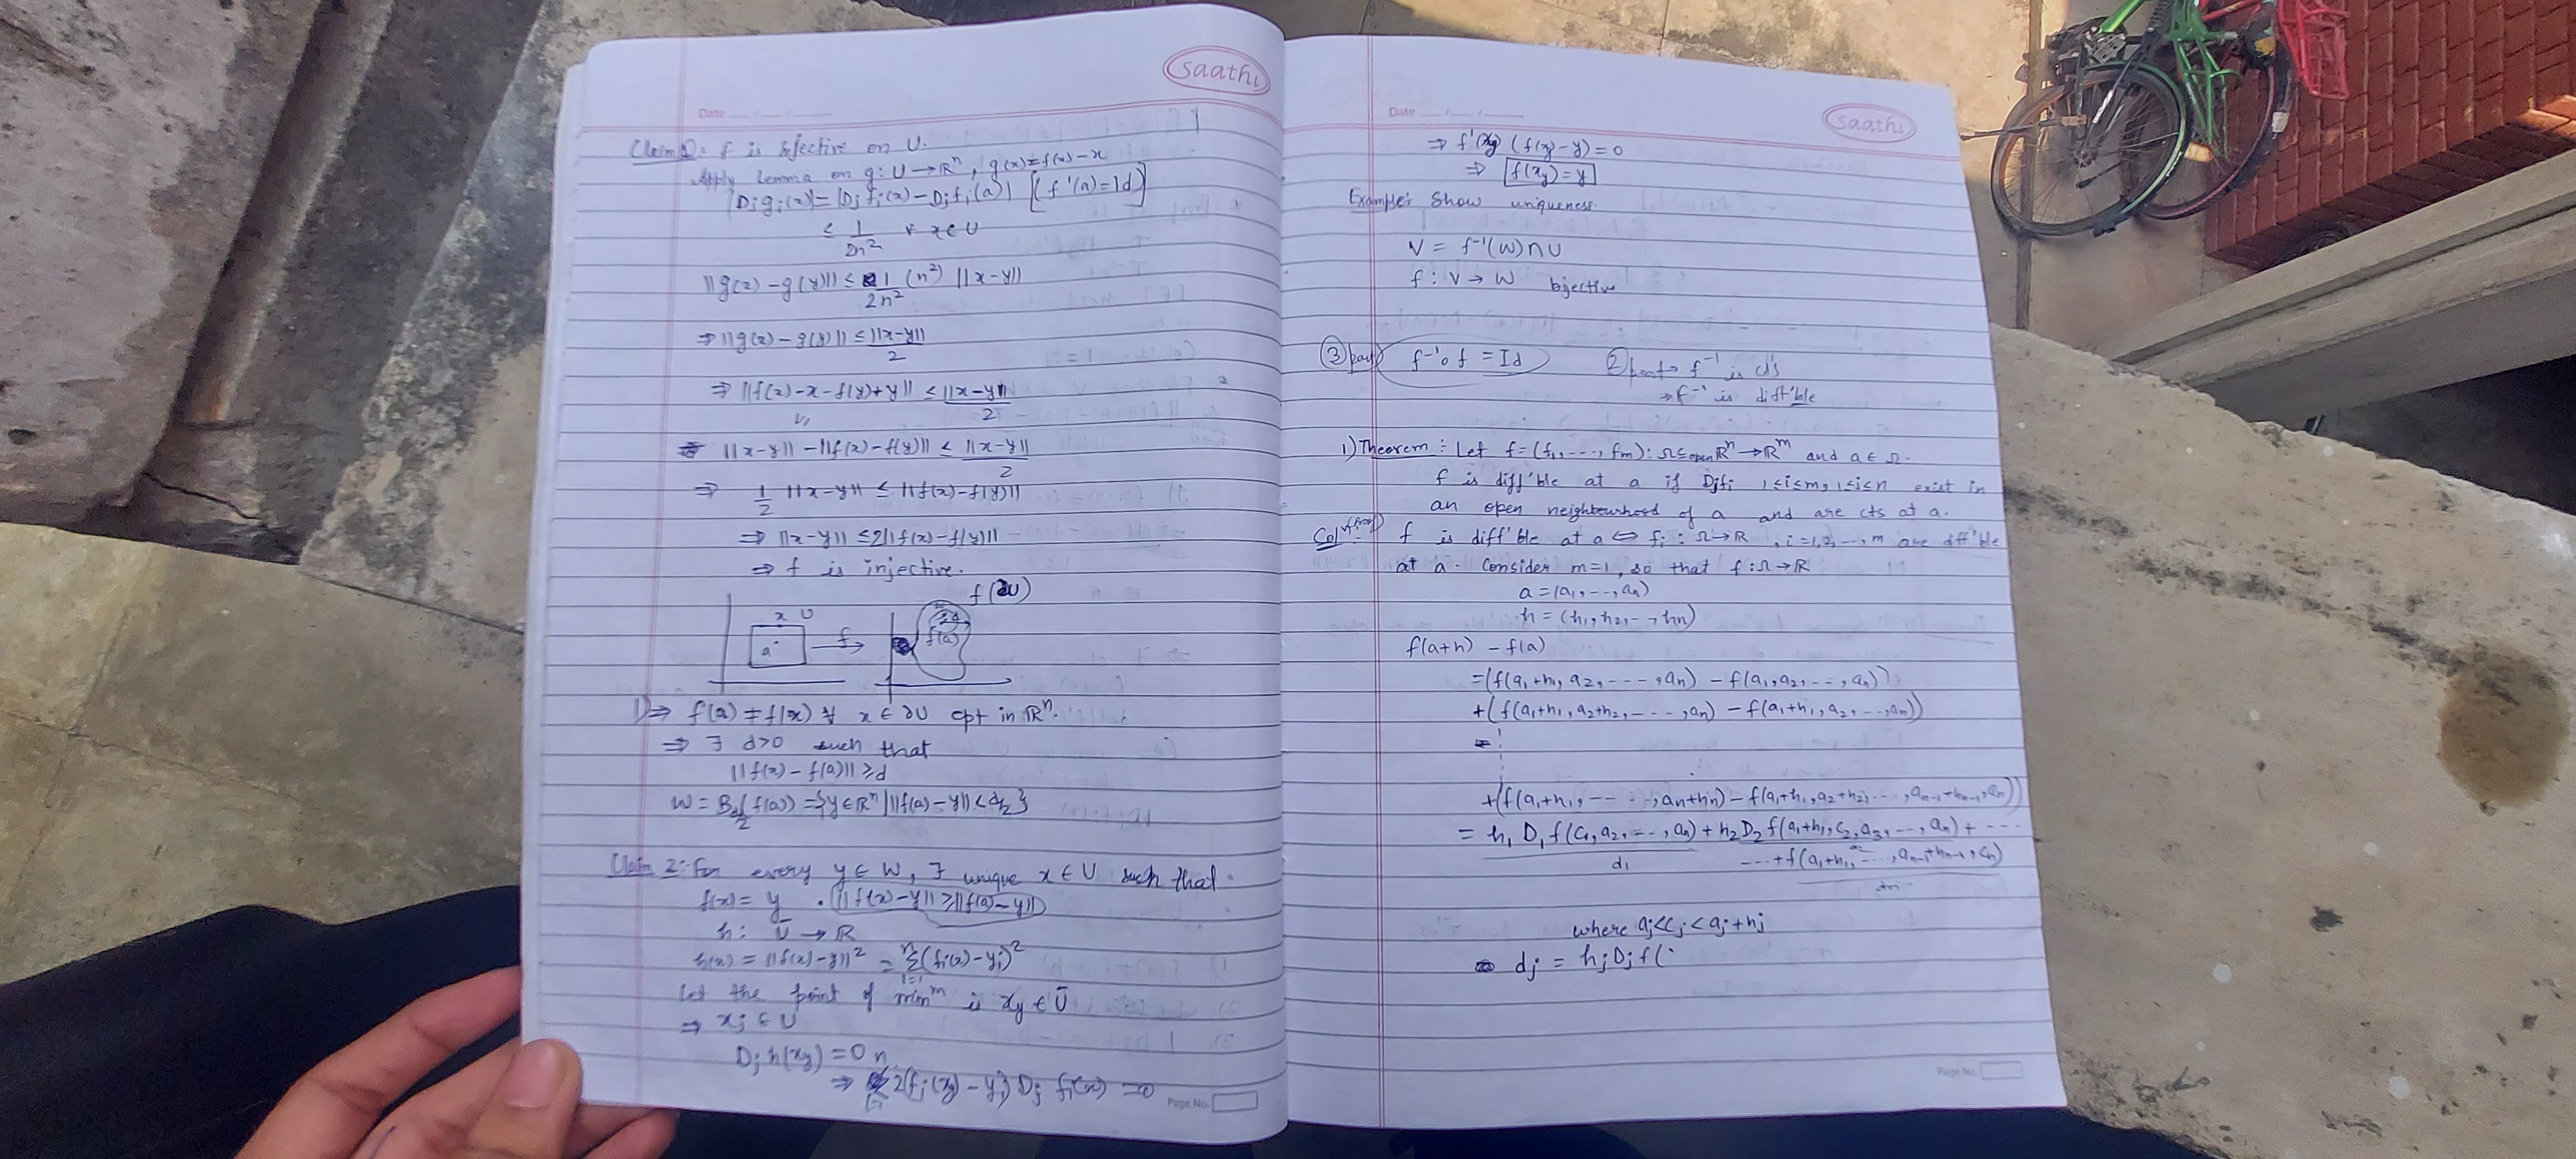 saathi
Date
Claim 1: f is injective on U.
Apply lemma on g: U → ℝⁿ, g(x) = f(x) - x
|Djgi(x)| = |Djfi(x) - Djfi(a)| [f'(a) = Id]
≤ 1/2n² ∀ x ∈ U
||g(x) - g(y)|| ≤ 1/2n² (n²) ||x-y||
⇒ ||g(x) - g(y)|| ≤ ||x-y||/2
⇒ ||f(x) - x - f(y) + y|| ≤ ||x-y||/2
||x-y|| - ||f(x) - f(y)|| ≤ ||x-y||/2
⇒ 1/2 ||x-y|| ≤ ||f(x) - f(y)||
⇒ ||x-y|| ≤ 2||f(x) - f(y)||
⇒ f is injective.
x U
a f→ f(a) f(∂U)
1) ⇒ f(a) ≠ f(x) ∀ x ∈ ∂U cpt in ℝⁿ.
⇒ ∃ d>0 such that
||f(x) - f(a)|| ≥ d
W = B_{d/2}(f(a)) = {y ∈ ℝⁿ | ||f(a) - y|| < d/2}
Claim 2: For every y ∈ W, ∃ unique x ∈ U such that
f(x) = y. (||f(x) - y|| > ||f(a) - y||)
h: Ū → ℝ
h(x) = ||f(x) - y||² = Σ_{i=1}^{n} (fi(x) - yi)²
Let the point of min^m is xy ∈ Ū
⇒ xy ∈ U
Djh(xy) = 0
⇒ 2(fi(xy) - yi) Dj fi(xy) = 0
Page No.
saathi
Date
⇒ f'(xy) (f(xy) - y) = 0
⇒ f(xy) = y
Example: Show uniqueness.
V = f⁻¹(W) ∩ U
f: V → W bijective
③ part f⁻¹ o f = Id 2) part → f⁻¹ is cts
→ f⁻¹ is diff'ble
1) Theorem: Let f = (f1, ..., fm): Ω ⊆open ℝⁿ → ℝᵐ and a ∈ Ω.
f is diff'ble at a if Djfi 1≤i≤m, 1≤j≤n exist in
an open neighbourhood of a and are cts at a.
f is diff'ble at a ⇔ fi: Ω → ℝ, i=1,2,...,m are diff'ble
at a. Consider m=1, so that f: Ω → ℝ
a = (a1, ..., an)
h = (h1, h2, ..., hn)
f(a+h) - f(a)
= (f(a1+h1, a2, ..., an) - f(a1, a2, ..., an))
+ (f(a1+h1, a2+h2, ..., an) - f(a1+h1, a2, ..., an))
+ (f(a1+h1, ..., an+hn) - f(a1+h1, a2+h2, ..., an-1+hn-1, an))
= h1 D1 f(c1, a2, ..., an) + h2 D2 f(a1+h1, c2, a3, ..., an) + ...
d1 ... + f(a1+h1, ..., an-1+hn-1, cn)
dn
where aj < cj < aj+hj
dj = hj Dj f(
Page No.